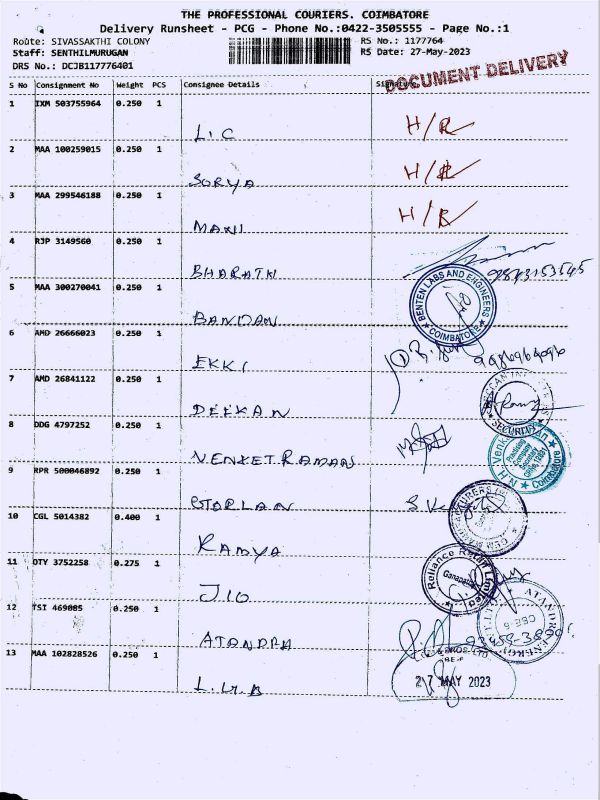 THE PROFESSIONAL COURIERS. COIMBATORE
Delivery Runsheet - PCG - Phone No.:0422-3505555 - Page No.:1
Route: SIVASSAKTHI COLONY
RS No.: 1177764
Staff: SENTHILMURUGAN
RS Date: 27-May-2023
DRS No.: DCJB117776401
DOCUMENT DELIVERY
S No Consignment No Weight PCS Consignee Details
1 IXM 503755964 0.250 1
L.C H/R
2 MAA 100259015 0.250 1
SORYA H/R
3 MAA 299546188 0.250 1
MANI H/R
4 RJP 3149560 0.250 1
BHARATH
5 MAA 300270041 0.250 1
BENTEN LABS AND ENGINEERS
COIMBATORE
BANDAN
6 AMD 26666023 0.250 1
EKKI
7 AMD 26841122 0.250 1
DEEKAN
SECURITY
8 DDG 4797252 0.250 1
VENKETRAMAN
Practising
Company
Secretary
Coimbatore
9 RPR 500046892 0.250 1
10 CGL 5014382 0.400 1
RAMYA
11 OTY 3752258 0.275 1
Reliance Retail Limited
JIO
12 TSI 469085 0.250 1
ATANDRA
13 MAA 102828526 0.250 1
27 MAY 2023